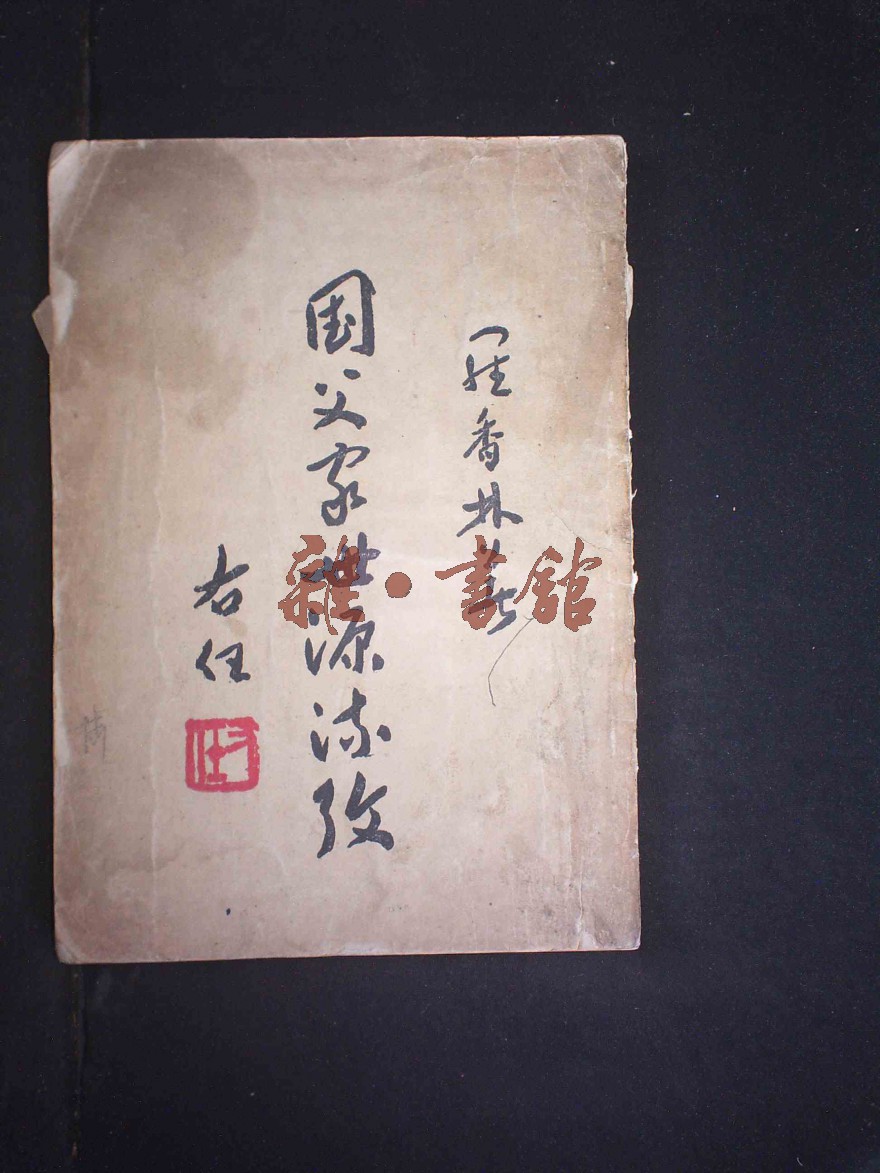 羅香林著
國父家世源流攷
右任
雜·書館